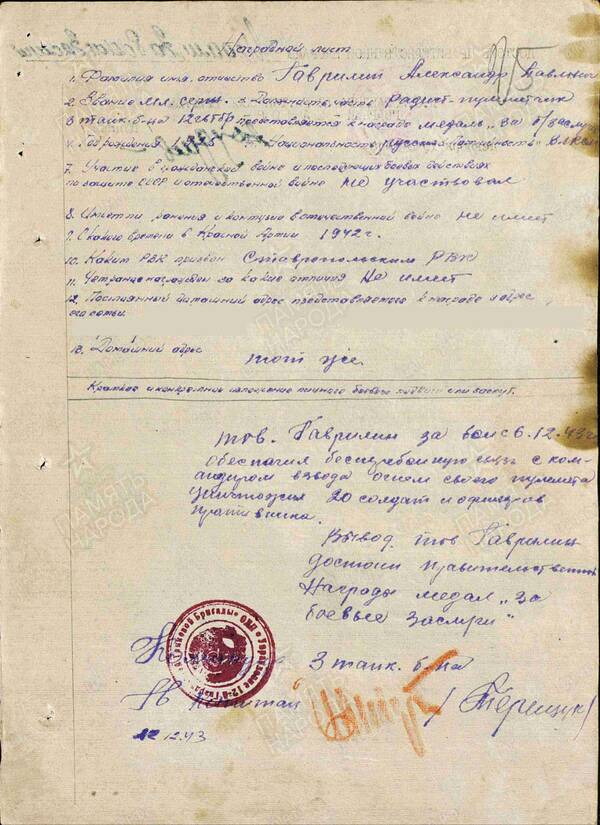 Наградной лист
1. Фамилия имя, отчество Гаврилин Александр Павлович
2. Звание мл. серж. 3. Должность, часть радист-пулеметчик
3 танк. б-на 12 гвтбр представляется к награде медаль „За б/заслуги"
Год рождения Национальность русский Партийность ВЛКСМ
7. Участие в гражданской войне и последующих боевых действиях
по защите СССР и отечественной войне не участвовал
8. Имеет ли ранения и контузии в отечественной войне не имеет
9. С какого времени в Красной Армии 1942 г.
10. Каким РВК призван Ставропольским РВК
11. Чем ранее награжден за какие отличия Не имеет
12. Постоянный домашний адрес представляемого к награде и адрес
его семьи
13. Домашний адрес тот же.
Краткое и конкретное изложение личного боевого подвига или заслуг.
тов. Гаврилин за 6.12.43г
обеспечил бесперебойную связь с ком-
андиром взвода огнем своего пулемета
уничтожил 20 солдат и офицеров
противника.
Вывод тов Гаврилин
достоин правительственной
Награды медал „За
боевые Заслуги"
Командир 3 танк. б-на
гв капитан /Терещук/
12.12.43
ПАМЯТЬ НАРОДА